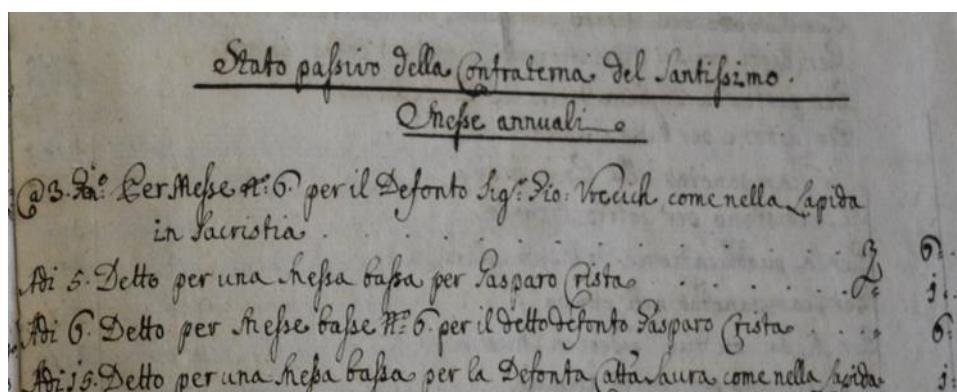 Stato passivo della Confraterna del Santissimo.
Messe annuali
@ 3. Per Messe N.º 6. per il Defonto Sig.r Gio: Vrecich come nella Lapida
in Sacristia . . . . . . . . . . . 6:
Adi 5. Detto per una Messa bassa per Gasparo Crista . . . . . . 1:
Adi 6. Detto per Messe basse N.º 6. per il detto defonto Gasparo Crista . . . 6:
Adi 15. Detto per una Messa bassa per la Defonta Catta Laura come nella Lapida 1: